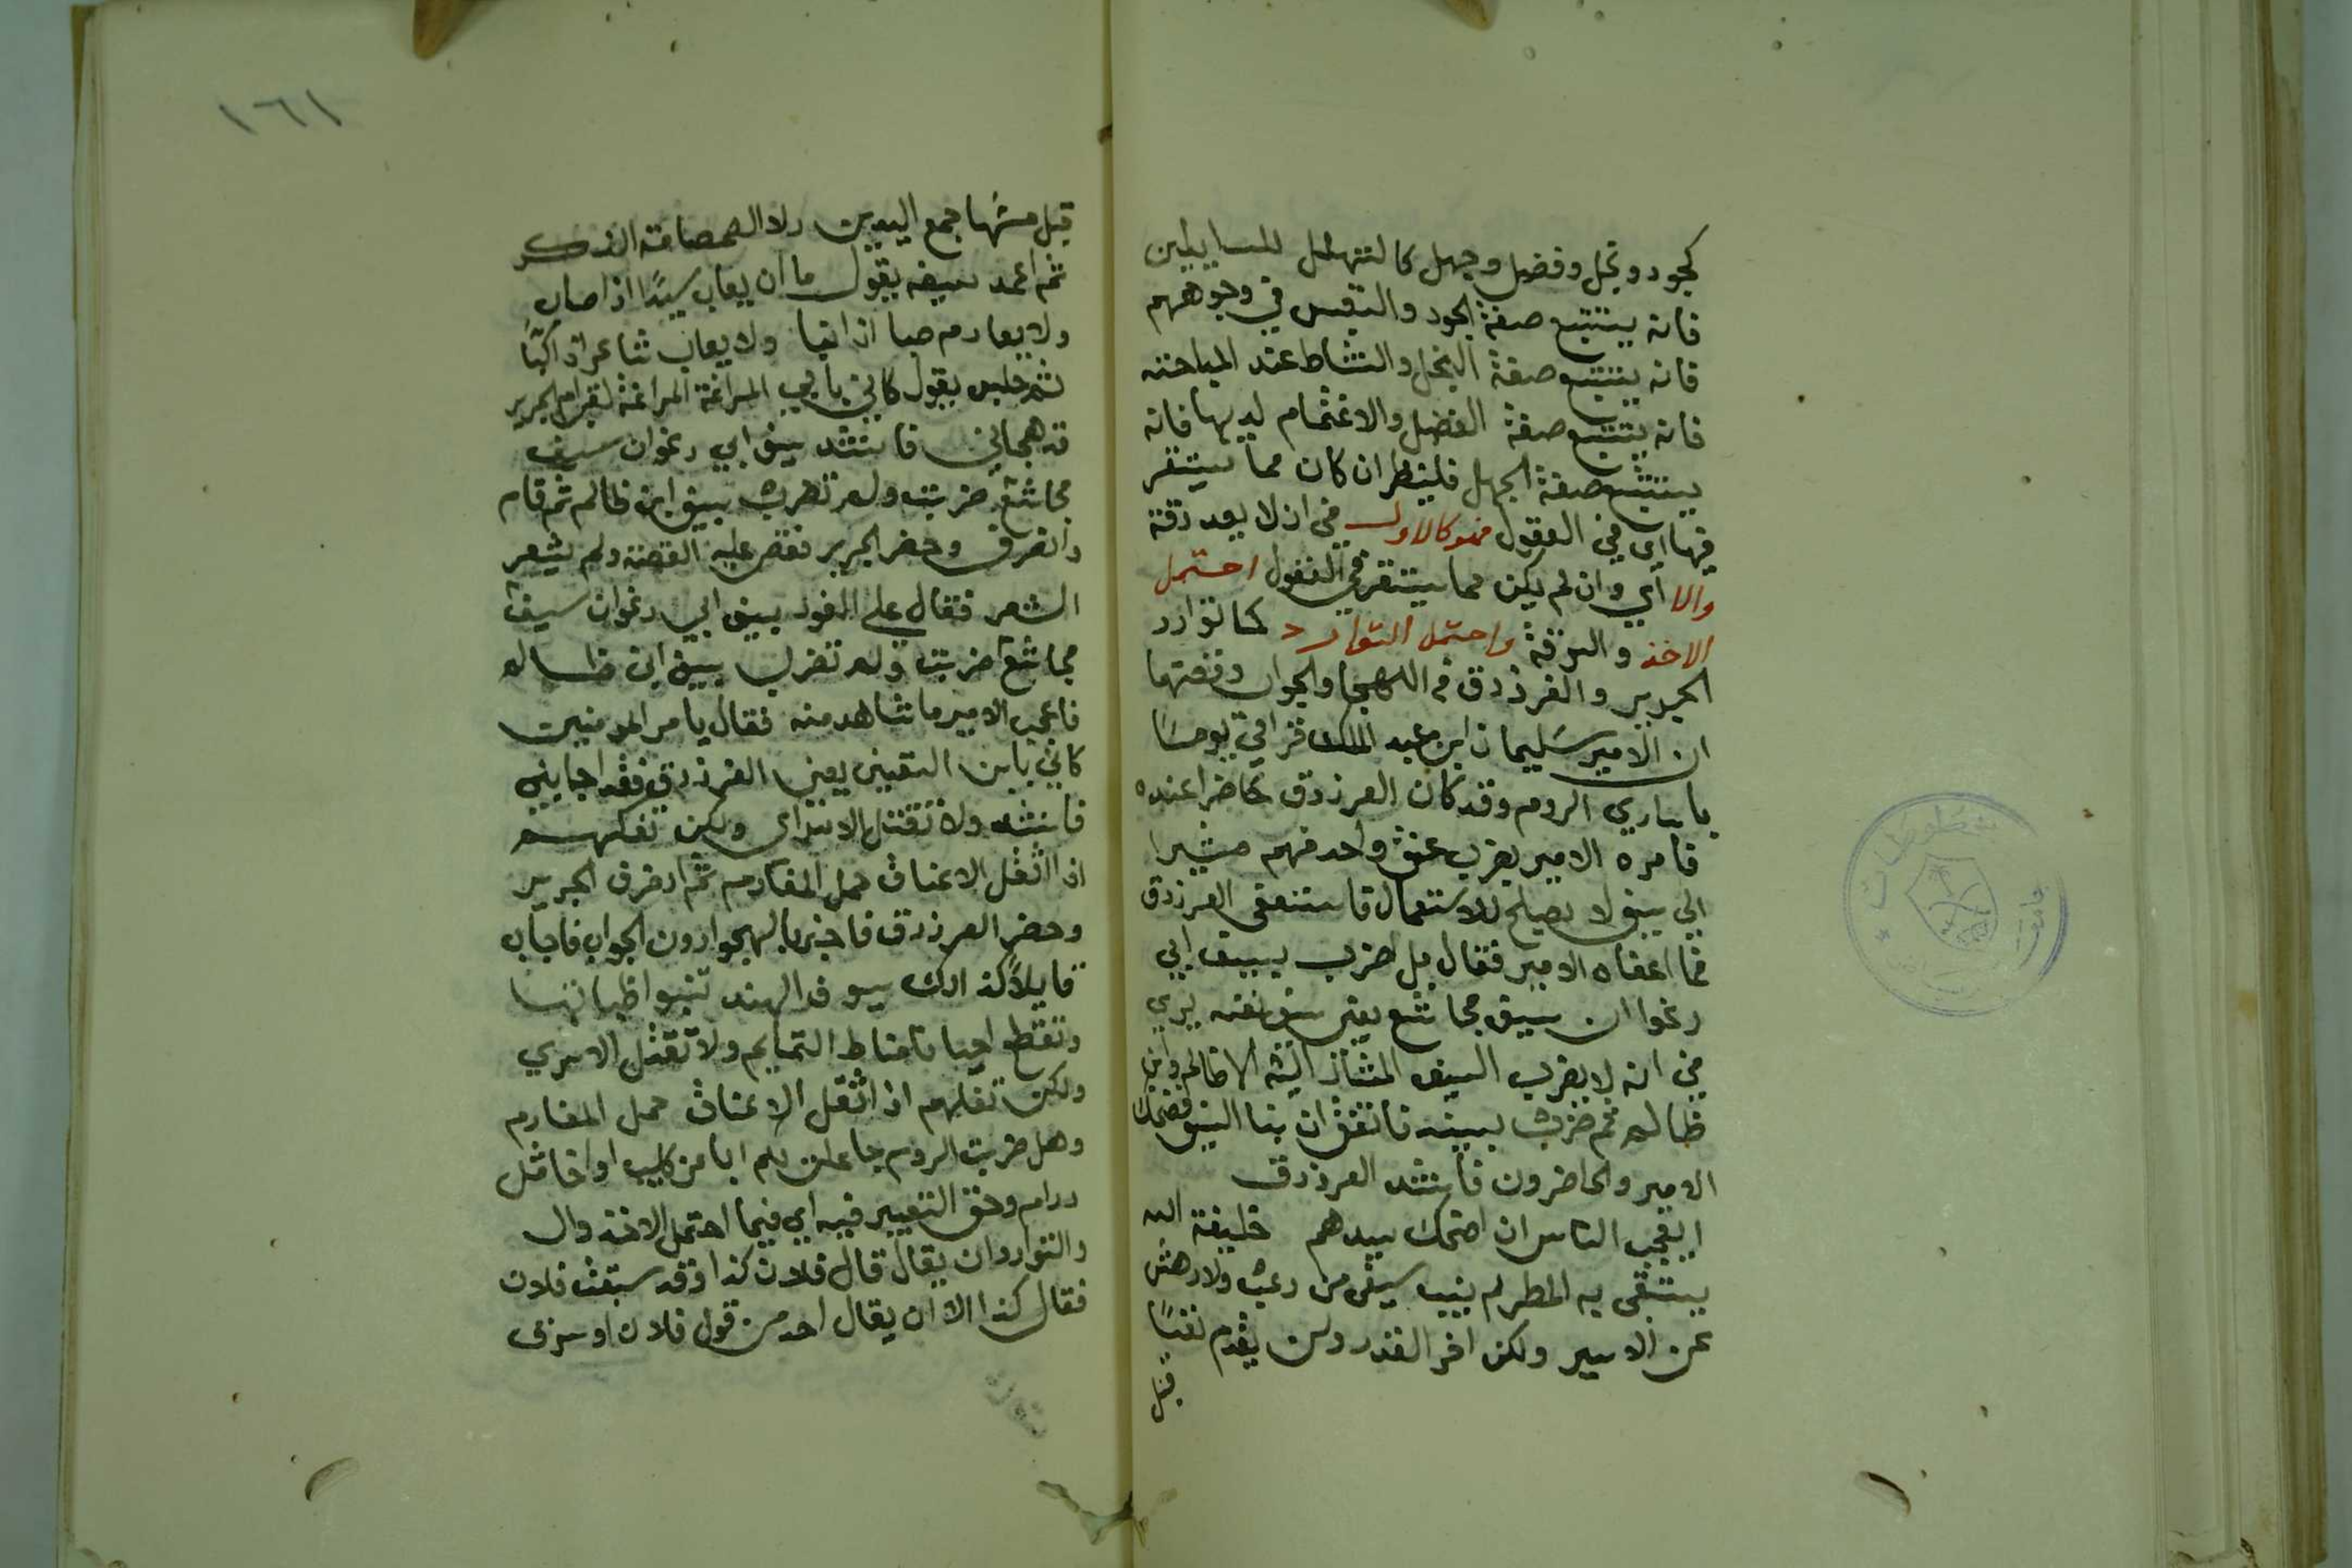 كجود وبخل وفضل وجهل كالتهلل للسايلين
فانه يتتبع صفة الجود والتعبس في وجوههم
فانه يتتبع صفة البخل والنشاط عند المباحثه
فانه يتتبع صفة الفضل والاغتمام لديها فانه
يتتبع صفة الجهل فلينظر ان كان مما يتقرر
فيها اي في العقول فهو كالاول في انه لا يعد سرقة
والا اي وان لم يكن مما يتقرر في العقول احتمل
الاخذ والسرقة واحتمل التوارد كما توارد
الجرير والفرزدق في الهجا والجواب وقصتهما
ان الامير سليمان ابن عبد الملك اتي يوما
باساري الروم وقد كان الفرزدق حاضرا عنده
فامره الامير بضرب عنق واحد منهم مشيرا
الي سيف لا يصلح للاستعمال فاستعفي الفرزدق
فما اعفاه الامير فقال بل اضرب بسيف ابي
رغوان سيف مجاشع يعني سيف نفسه يري
من انه لا يضرب السيف الا ظالم وابن
ظالم ثم ضرب بسيفه فاتفق ان نبا السيف فضحك
الامير والحاضرون فانشد الفرزدق
ايعجب الناس ان اضحك سيدهم خليفة الله
يستسقي به المطر لم ينب سيفي من رعب ولا دهش
عن الاسير ولكن اخر القدر ولن يقدم نفسا
قبل
١٦١
قبل جمع اليدين ولا الصمصامة الذكر
ثم اغمد سيفه يقول ما ان يعاب سيدا اذا صاب
ولا يعاب صارم اذا نبا ولا يعاب شاعر اذا كبا
ثم جلس يقول كاني بابن المراغة الجرير
قد هجاني فانشد بسيف ابي رغوان سيف
مجاشع ضربت ولم تضرب بسيف ابن ظالم ثم قام
وانصرف وحضر الجرير فقص عليه القصة ولم يشعر
الشعر فقال علي الفور بسيف ابي رغوان سيف
مجاشع ضربت ولم تضرب بسيف ابن ظالم
فاعجب الامير ما شاهد منه فقال يا امير المومنين
كاني بابن القين يعني الفرزدق فقد اجابني
فانشد ولا نقتل الاسرى ولكن نفكهم
اذا اثقل الاعناق حمل المغارم ثم انصرف الجرير
وحضر الفرزدق فاخبر بالهجو دون الجواب فاجاب
قايلا كذاك سيوف الهند تنبوا ظباتها
وتقطع احيانا مناط التمايم ولا نقتل الاسري
ولكن نفكهم اذا اثقل الاعناق حمل المغارم
وهل ضربت الروم جاعلت لكم ابا من كليب او اخا مثل
دارم وحق التعبير فيه اي فيما احتمل الاخذ وال
والتوارد ان يقال قال فلان كذا وقد سبقه فلان
فقال كذا الا ان يقال اخذ من قول فلان او سرق